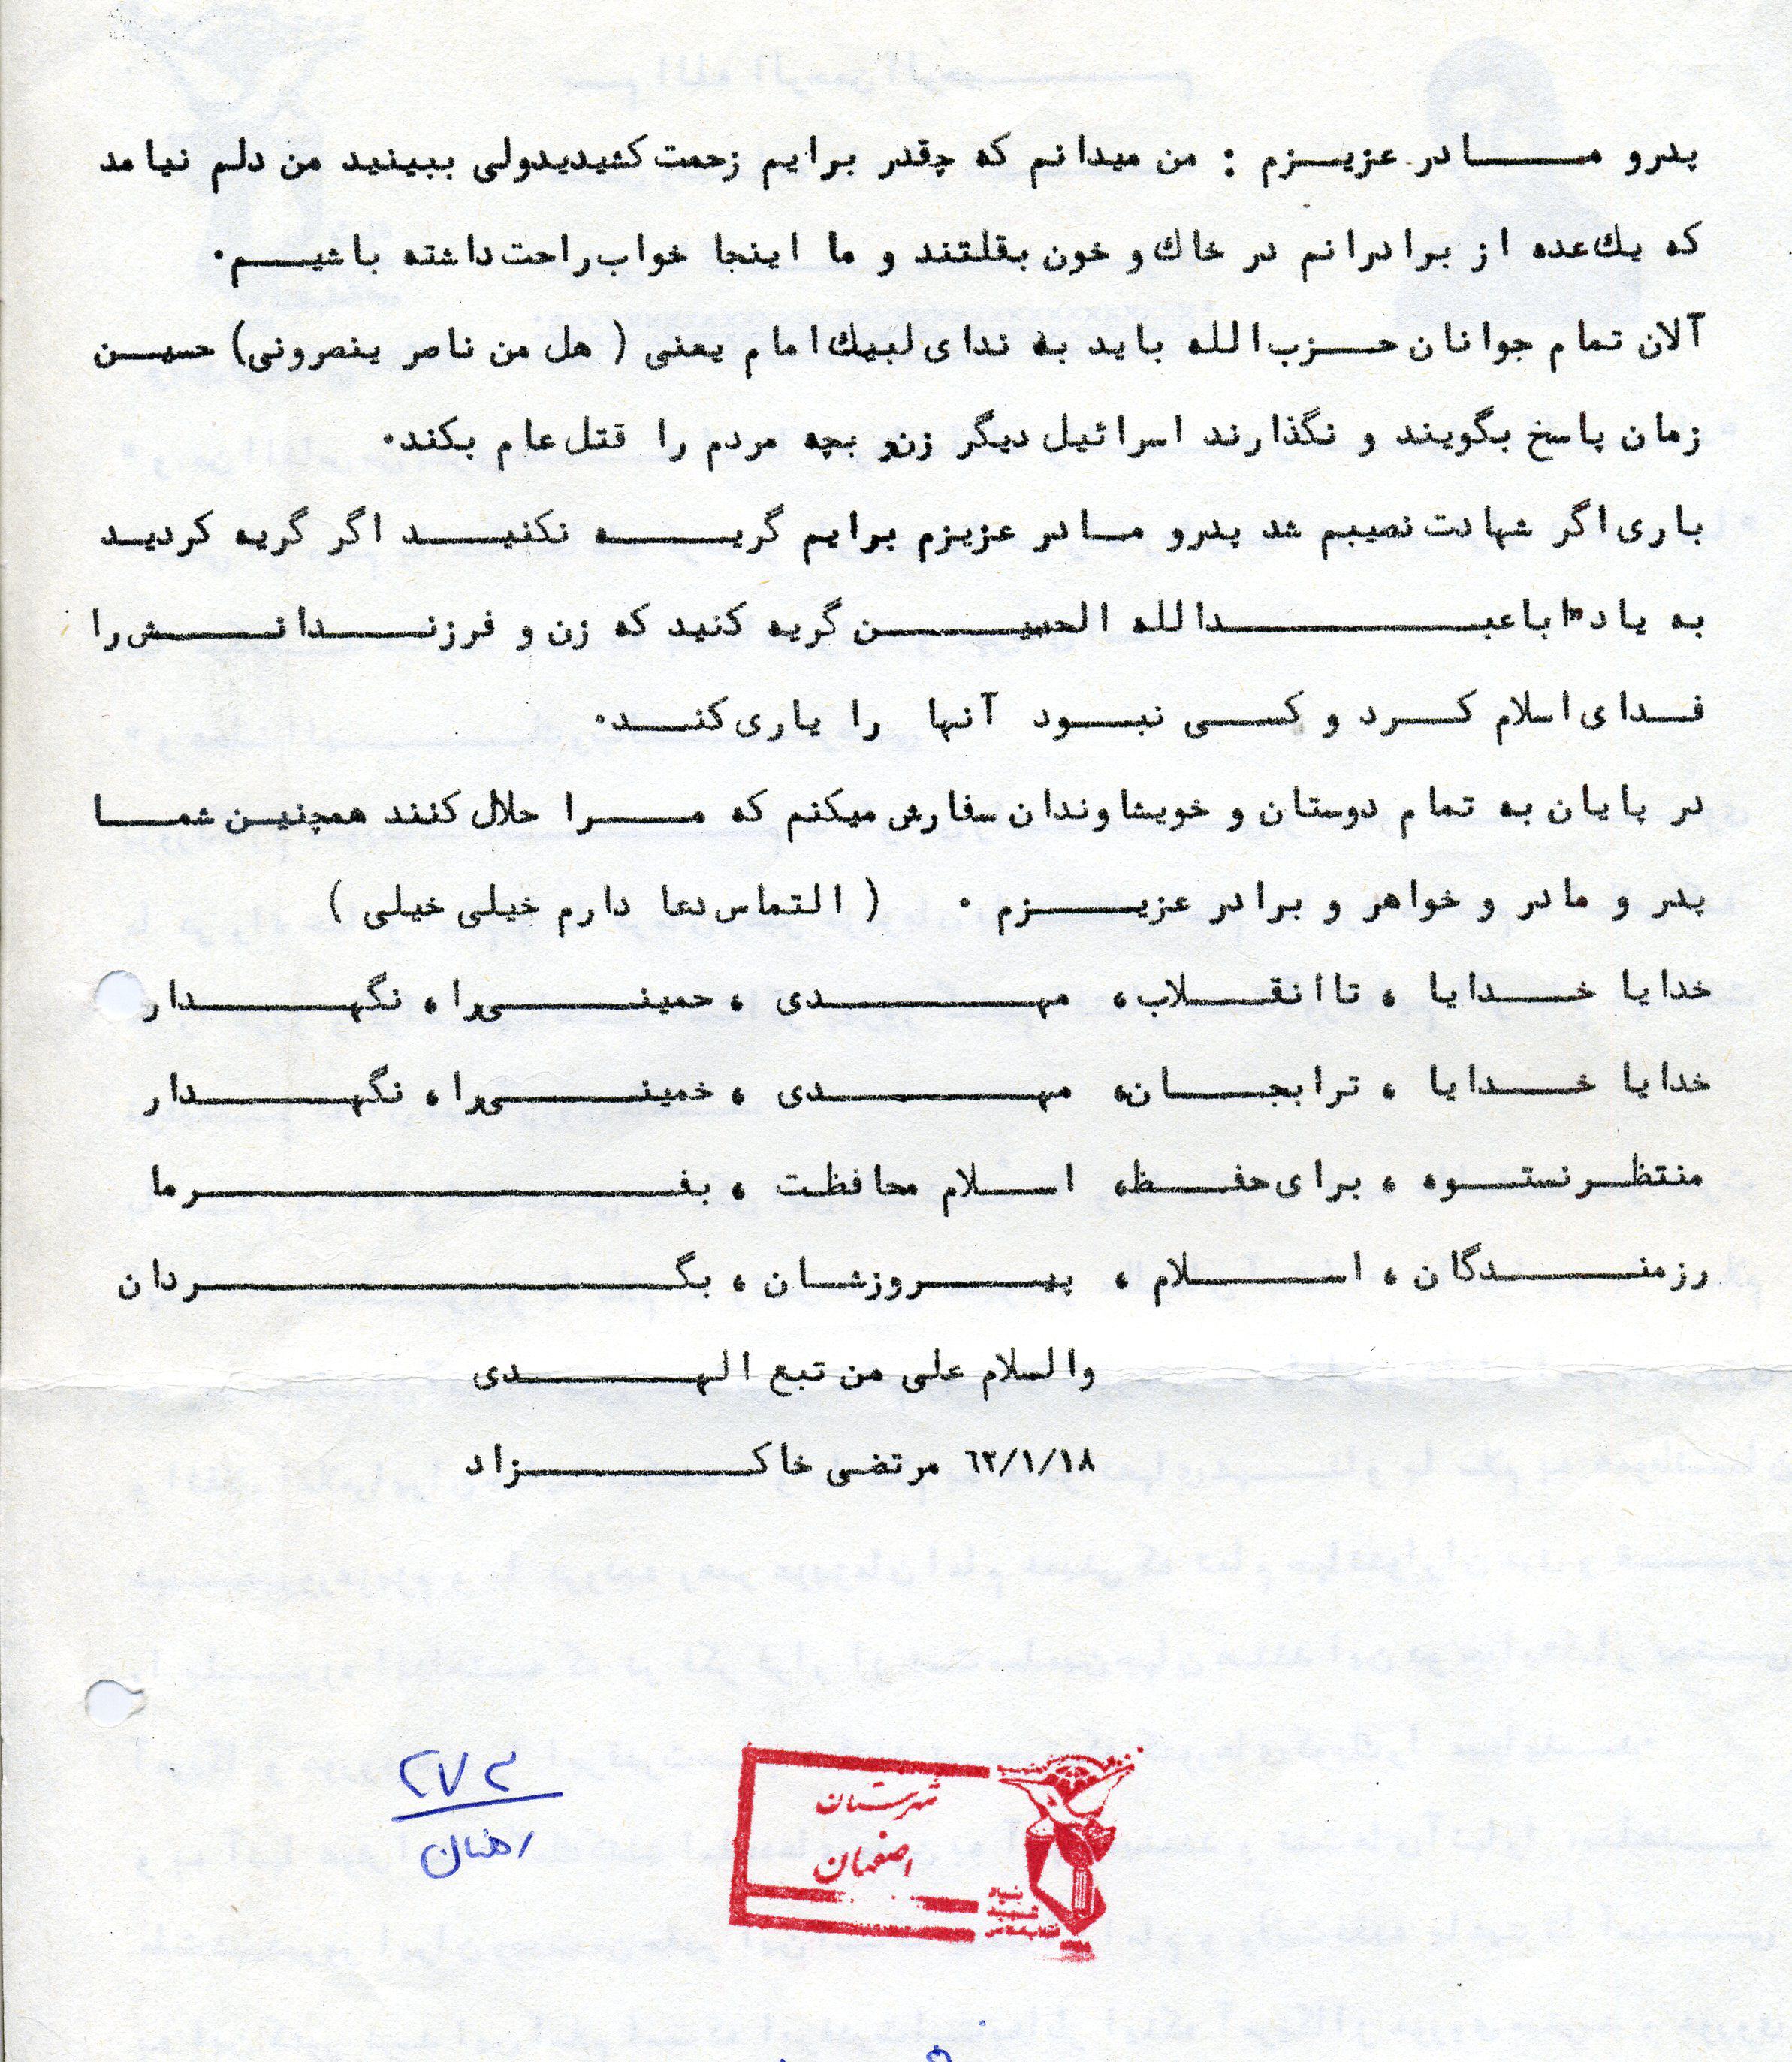 پدرو مــادر عزیـزم : من میدانم که چقدر برایم زحمت کشیدیدولی ببینید من دلم نیامد
که یك عده از برادرانم در خاك و خون بقلتند و ما اینجا خواب راحت داشته باشیـم.
آلان تمام جوانان حـزب الله باید به ندای لبیك امام یعنی ( هل من ناصر ینصرونی) حسیـن
زمان پاسخ بگویند و نگذارند اسرائیل دیگر زنو بچه مردم را قتل عام بکند.
باری اگر شهادت نصیبم شد پدرو مـادر عزیزم برایم گریــه نکنیـد اگر گریه کردیـد
به یاد اباعبــدالله الحسیــن گریه کنید که زن و فرزنــدانــش را
فـدای اسلام کـرد و کـسی نبـود آنها را یاری کنـد.
در پایان به تمام دوستان و خویشاوندان سفارش میکنم که مــرا حلال کنند همچنیـن شمـا
پدر و مادر و خواهر و برادر عزیــزم . ( التماس دعا دارم خیلی خیلی )
خدایا خـدایا ، تا انقـلاب، مهــدی ، حمینــی را ، نگهــدار
خدایا خـدایا ، ترابجـان، مهــدی ، خمینــی را ، نگهــدار
منتظـرنستـوه ، برای حفـظ، اسـلام محافظت ، بفــرما
رزمنــدگان ، اســلام ، پیــروزشـان ، بگــردان
والسلام علی من تبع الهــدی
٦٢/١/١٨ مرتضی خاکــزاد
شهرستان
اصفهان
بنیاد
شهید
انقلاب اسلامی